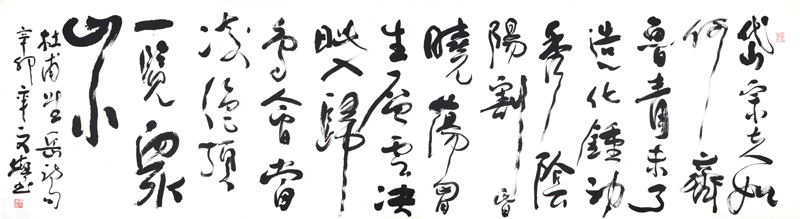 岱宗夫如
何齊
魯青未了
造化鍾神
秀陰
陽割昏
曉蕩胷
生層雲決
眦入歸
鳥會當
凌絕頂
一覽眾
山小
杜甫望岳詩句
辛卯 文 書